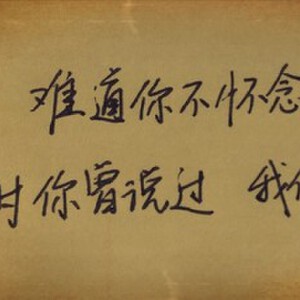 难道你不怀念
你曾说过 我